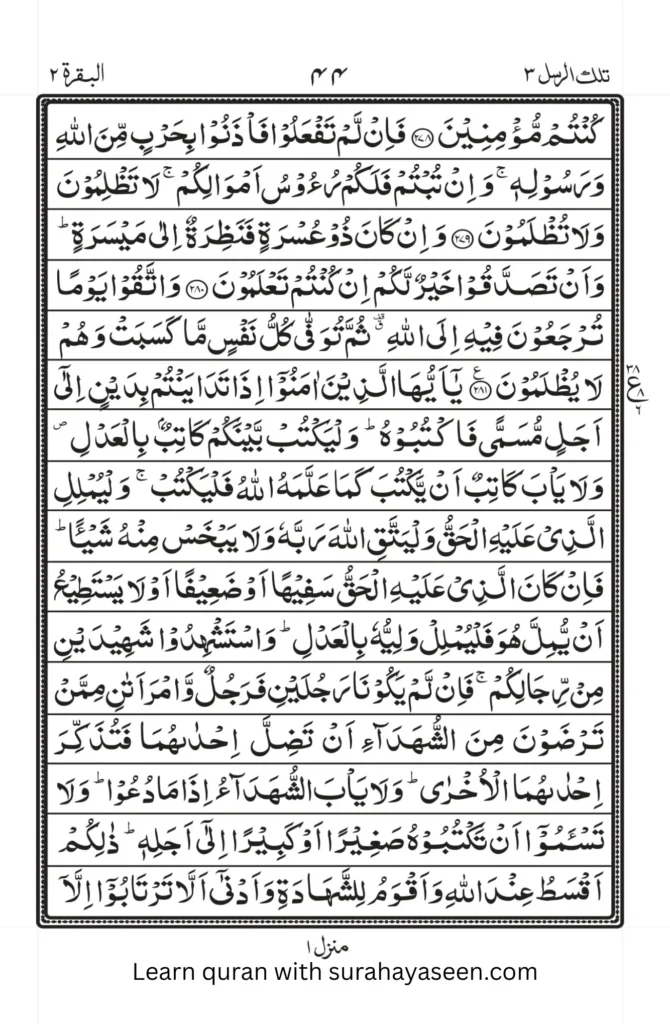 تلك الرسل ٣
٤٤
البقرة ٢
كُنْتُمْ مُّؤْمِنِيْنَ ﴿٢٧٨﴾ فَاِنْ لَّمْ تَفْعَلُوْا فَاْذَنُوْا بِحَرْبٍ مِّنَ اللّٰهِ
وَرَسُوْلِهٖ ۚ وَاِنْ تُبْتُمْ فَلَكُمْ رُءُوْسُ اَمْوَالِكُمْ ۚ لَا تَظْلِمُوْنَ
وَلَا تُظْلَمُوْنَ ﴿٢٧٩﴾ وَاِنْ كَانَ ذُوْ عُسْرَةٍ فَنَظِرَةٌ اِلٰى مَيْسَرَةٍ ؕ
وَاَنْ تَصَدَّقُوْا خَيْرٌ لَّكُمْ اِنْ كُنْتُمْ تَعْلَمُوْنَ ﴿٢٨٠﴾ وَاتَّقُوْا يَوْمًا
تُرْجَعُوْنَ فِيْهِ اِلَى اللّٰهِ ۗ ثُمَّ تُوَفّٰى كُلُّ نَفْسٍ مَّا كَسَبَتْ وَهُمْ
لَا يُظْلَمُوْنَ ﴿٢٨١﴾ ع يٰۤاَيُّهَا الَّذِيْنَ اٰمَنُوْۤا اِذَا تَدَايَنْتُمْ بِدَيْنٍ اِلٰٓى
٣٨
ع ٨
٦
اَجَلٍ مُّسَمًّى فَاكْتُبُوْهُ ؕ وَلْيَكْتُبْ بَّيْنَكُمْ كَاتِبٌۢ بِالْعَدْلِ ۪
وَلَا يَاْبَ كَاتِبٌ اَنْ يَّكْتُبَ كَمَا عَلَّمَهُ اللّٰهُ فَلْيَكْتُبْ ۚ وَلْيُمْلِلِ
الَّذِيْ عَلَيْهِ الْحَقُّ وَلْيَتَّقِ اللّٰهَ رَبَّهٗ وَلَا يَبْخَسْ مِنْهُ شَيْـًٔا ؕ
فَاِنْ كَانَ الَّذِيْ عَلَيْهِ الْحَقُّ سَفِيْهًا اَوْ ضَعِيْفًا اَوْ لَا يَسْتَطِيْعُ
اَنْ يُّمِلَّ هُوَ فَلْيُمْلِلْ وَلِيُّهٗ بِالْعَدْلِ ؕ وَاسْتَشْهِدُوْا شَهِيْدَيْنِ
مِنْ رِّجَالِكُمْ ۚ فَاِنْ لَّمْ يَكُوْنَا رَجُلَيْنِ فَرَجُلٌ وَّامْرَاَتٰنِ مِمَّنْ
تَرْضَوْنَ مِنَ الشُّهَدَآءِ اَنْ تَضِلَّ اِحْدٰىهُمَا فَتُذَكِّرَ
اِحْدٰىهُمَا الْاُخْرٰى ؕ وَلَا يَاْبَ الشُّهَدَآءُ اِذَا مَا دُعُوْا ؕ وَلَا
تَسْـَٔمُوْۤا اَنْ تَكْتُبُوْهُ صَغِيْرًا اَوْ كَبِيْرًا اِلٰٓى اَجَلِهٖ ؕ ذٰلِكُمْ
اَقْسَطُ عِنْدَ اللّٰهِ وَاَقْوَمُ لِلشَّهَادَةِ وَاَدْنٰٓى اَلَّا تَرْتَابُوْۤا اِلَّاۤ
منزل ١
Learn quran with surahayaseen.com